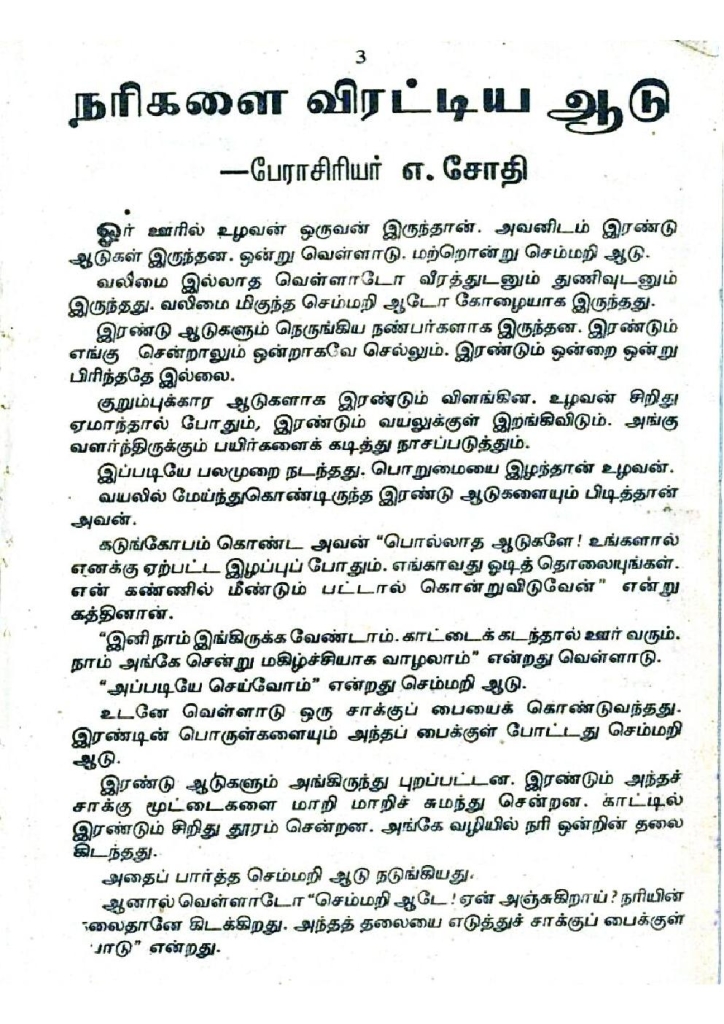 3
நரிகளை விரட்டிய ஆடு
—பேராசிரியர் எ. சோதி
ஓர் ஊரில் உழவன் ஒருவன் இருந்தான். அவனிடம் இரண்டு
ஆடுகள் இருந்தன. ஒன்று வெள்ளாடு. மற்றொன்று செம்மறி ஆடு.
வலிமை இல்லாத வெள்ளாடோ வீரத்துடனும் துணிவுடனும்
இருந்தது. வலிமை மிகுந்த செம்மறி ஆடோ கோழையாக இருந்தது.
இரண்டு ஆடுகளும் நெருங்கிய நண்பர்களாக இருந்தன. இரண்டும்
எங்கு சென்றாலும் ஒன்றாகவே செல்லும். இரண்டும் ஒன்றை ஒன்று
பிரிந்ததே இல்லை.
குறும்புக்கார ஆடுகளாக இரண்டும் விளங்கின. உழவன் சிறிது
ஏமாந்தால் போதும், இரண்டும் வயலுக்குள் இறங்கிவிடும். அங்கு
வளர்ந்திருக்கும் பயிர்களைக் கடித்து நாசப்படுத்தும்.
இப்படியே பலமுறை நடந்தது. பொறுமையை இழந்தான் உழவன்.
வயலில் மேய்ந்துகொண்டிருந்த இரண்டு ஆடுகளையும் பிடித்தான்
அவன்.
கடுங்கோபம் கொண்ட அவன் “பொல்லாத ஆடுகளே! உங்களால்
எனக்கு ஏற்பட்ட இழப்புப் போதும். எங்காவது ஓடித் தொலையுங்கள்.
என் கண்ணில் மீண்டும் பட்டால் கொன்றுவிடுவேன்” என்று
கத்தினான்.
“இனி நாம் இங்கிருக்க வேண்டாம். காட்டைக் கடந்தால் ஊர் வரும்.
நாம் அங்கே சென்று மகிழ்ச்சியாக வாழலாம்” என்றது வெள்ளாடு.
“அப்படியே செய்வோம்” என்றது செம்மறி ஆடு.
உடனே வெள்ளாடு ஒரு சாக்குப் பையைக் கொண்டுவந்தது.
இரண்டின் பொருள்களையும் அந்தப் பைக்குள் போட்டது செம்மறி
ஆடு.
இரண்டு ஆடுகளும் அங்கிருந்து புறப்பட்டன. இரண்டும் அந்தச்
சாக்கு மூட்டைகளை மாறி மாறிச் சுமந்து சென்றன. காட்டில்
இரண்டும் சிறிது தூரம் சென்றன. அங்கே வழியில் நரி ஒன்றின் தலை
கிடந்தது.
அதைப் பார்த்த செம்மறி ஆடு நடுங்கியது.
ஆனால் வெள்ளாடோ “செம்மறி ஆடே! ஏன் அஞ்சுகிறாய்? நரியின்
லைதானே கிடக்கிறது. அந்தத் தலையை எடுத்துச் சாக்குப் பைக்குள்
பாடு” என்றது.